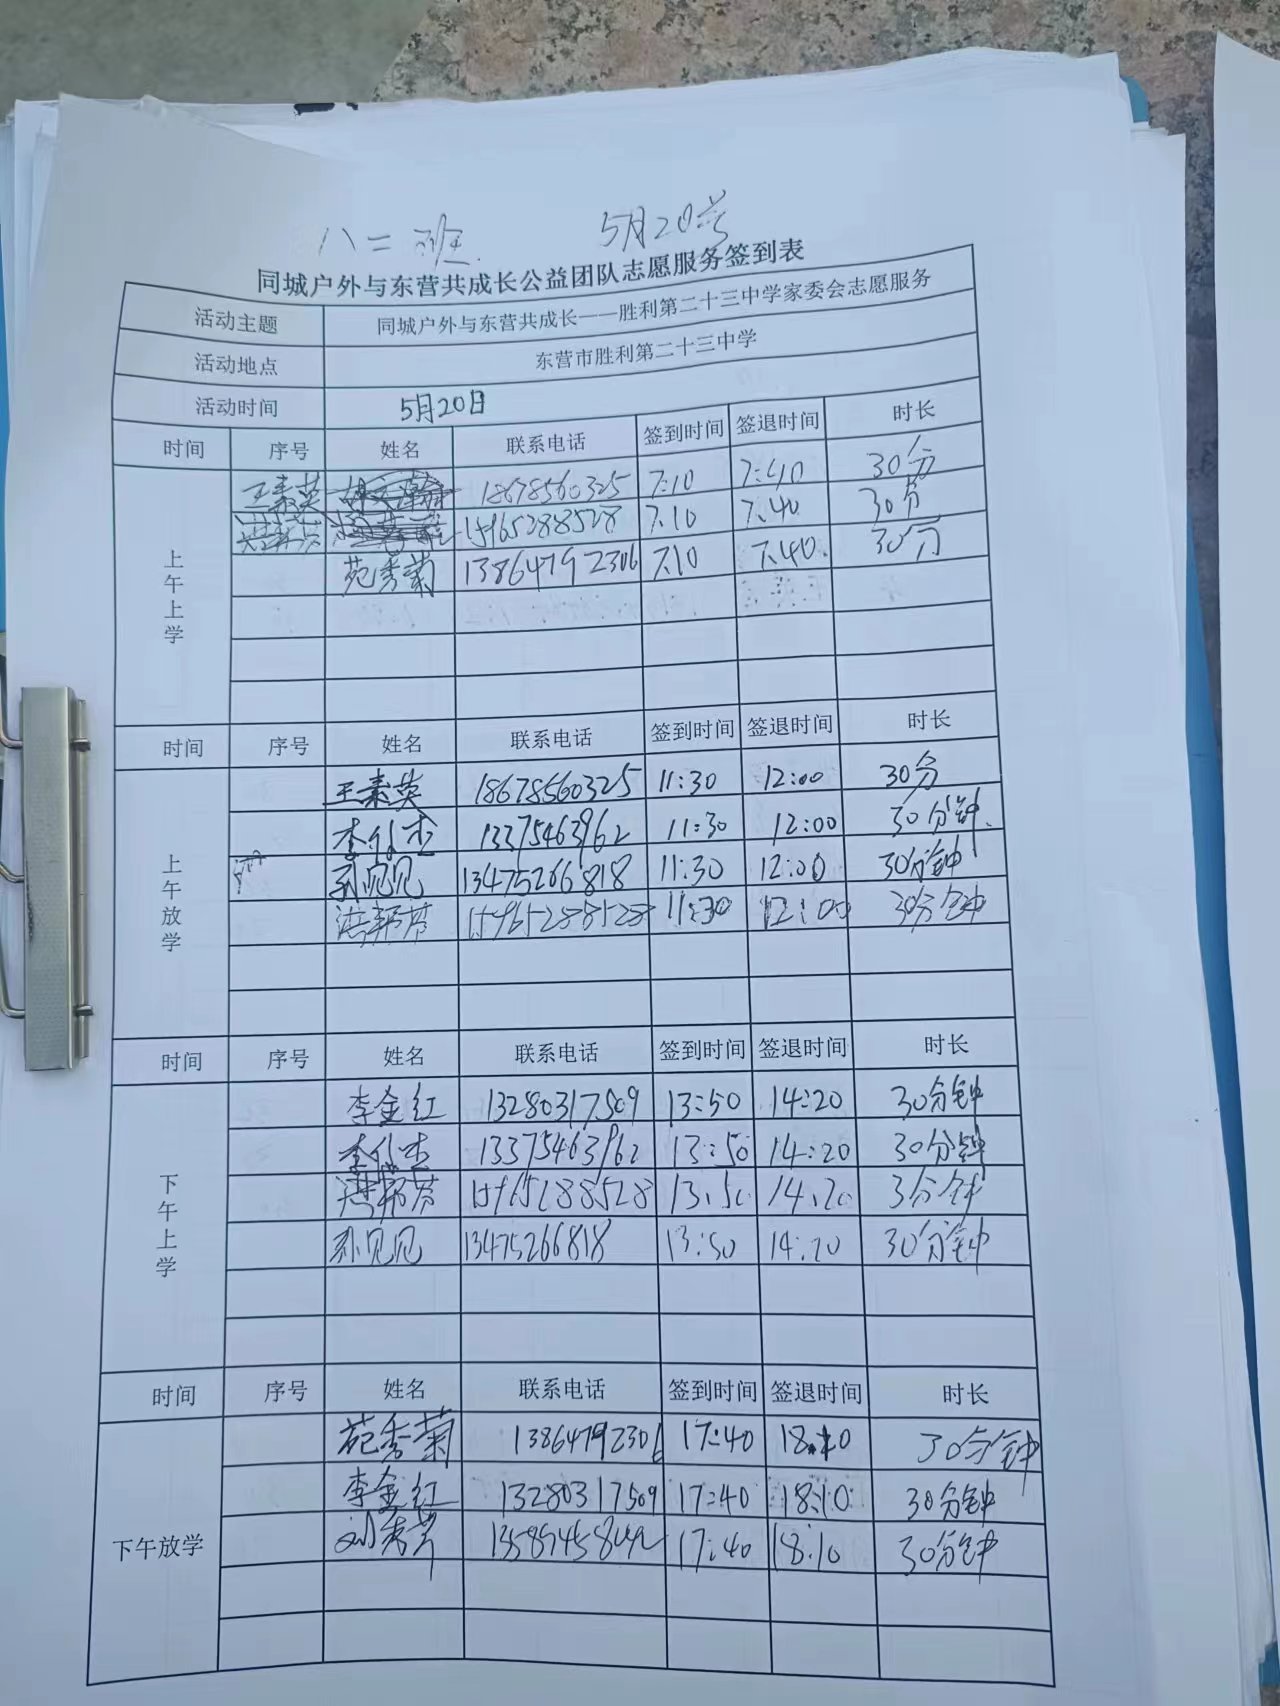 八二班 5月20号
同城户外与东营共成长公益团队志愿服务签到表
活动主题 同城户外与东营共成长——胜利第二十三中学家委会志愿服务
活动地点 东营市胜利第二十三中学
活动时间 5月20日
时间 序号 姓名 联系电话 签到时间 签退时间 时长
上午上学
王素英 18678560325 7:10 7:40 30分
15965288528 7.10 7.40 30分
苑秀菊 13864792306 7.10 7.40. 30分
时间 序号 姓名 联系电话 签到时间 签退时间 时长
上午放学
王素英 18678560325 11:30 12:00 30分
李 杰 13375463962 11:30 12:00 30分钟.
孙见见 13475266818 11:30 12:00 30分钟
15965288528 11:30 12:00 30分钟
时间 序号 姓名 联系电话 签到时间 签退时间 时长
下午上学
李金红 13280317509 13:50 14:20 30分钟
李 杰 13375463962 13:50 14:20 30分钟
15965288528 13.50 14.20 3分钟
孙见见 13475266818 13:50 14:20 30分钟
时间 序号 姓名 联系电话 签到时间 签退时间 时长
下午放学
苑秀菊 13864792306 17:40 18:10 30分钟
李金红 13280317509 17:40 18:10 30分钟
刘秀芹 17:40 18:10 30分钟